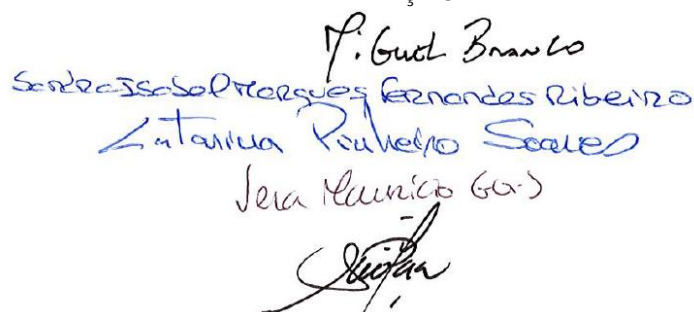 Miguel Branco
Sandra Isabel Marques Fernandes Ribeiro
Catarina Pinheiro Soares
Vera Maurício